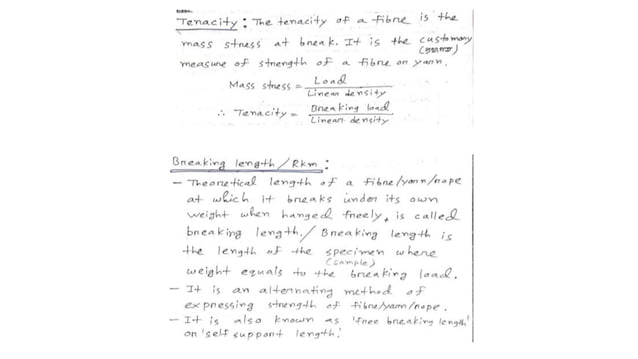 Tenacity: The tenacity of a fibre is the
mass stress at break. It is the customary
measure of strength of a fibre or yarn.
Mass stress = Load / Linear density
∴ Tenacity = Breaking load / Linear density
Breaking length/Rkm:
– Theoretical length of a fibre/yarn/rope
at which it breaks under its own
weight when hanged freely, is called
breaking length./ Breaking length is
the length of the specimen where
(sample)
weight equals to the breaking load.
– It is an alternating method of
expressing strength of fibre/yarn/rope.
– It is also known as 'free breaking length'
or 'self support length.'